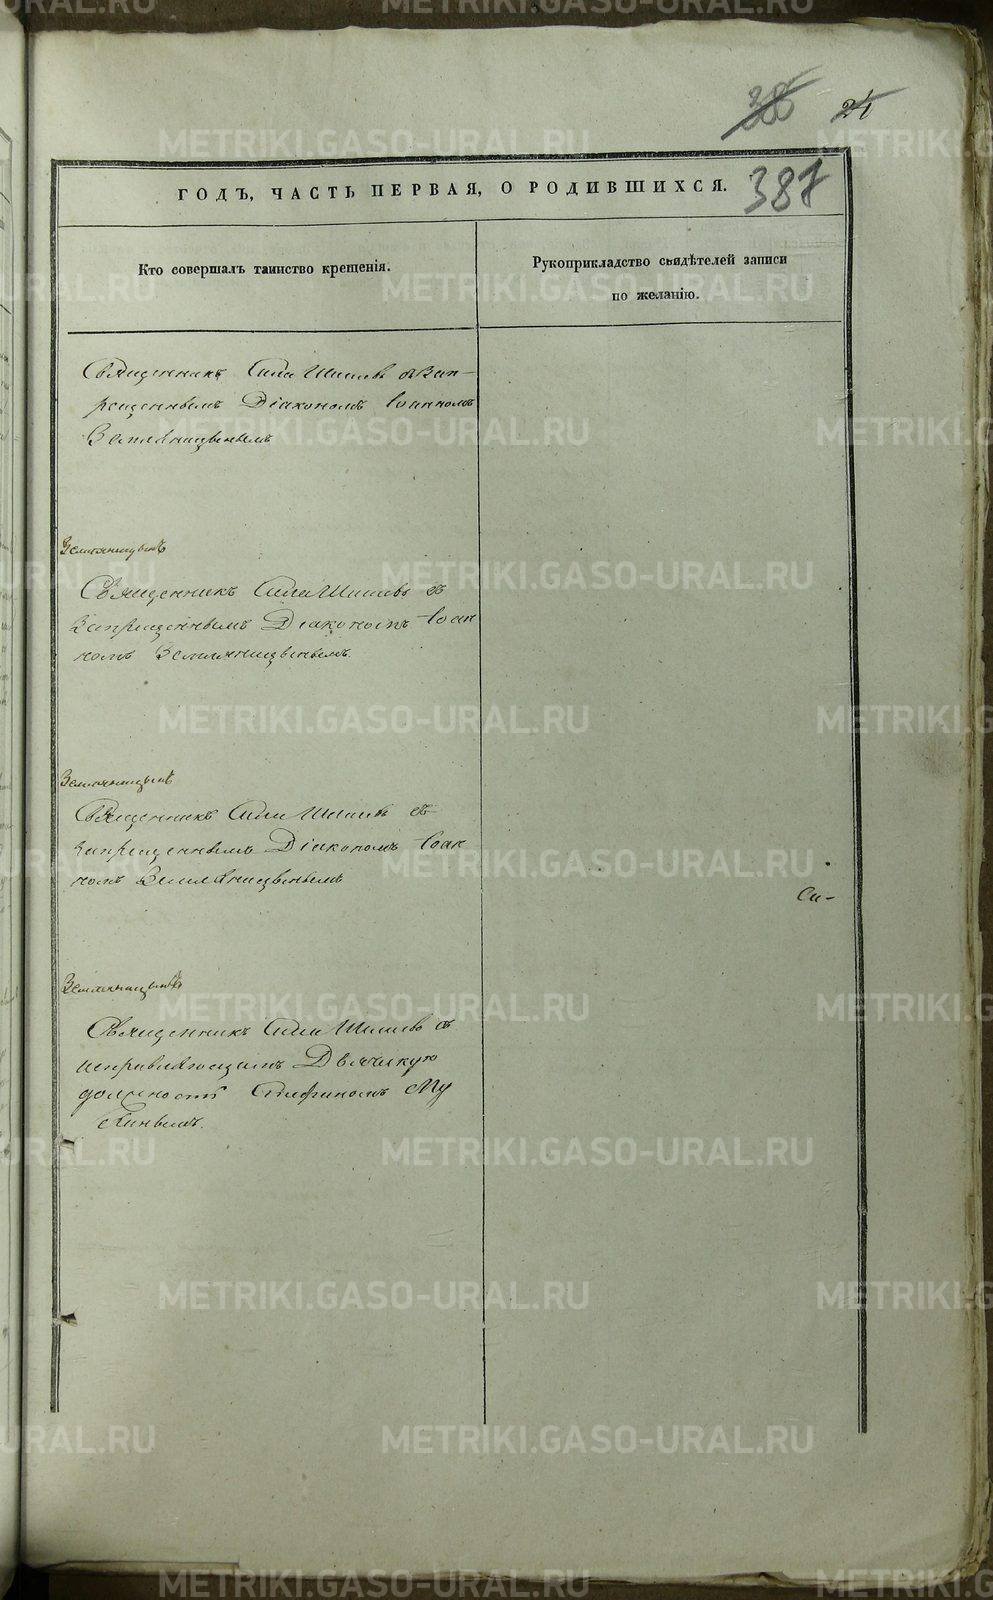 385 24
387
ГОДЪ, ЧАСТЬ ПЕРВАЯ, О РОДИВШИХСЯ.
Кто совершалъ таинство крещенія.
Рукоприкладство свидѣтелей записи
по желанію.
Священникъ Сила Шишевъ съ Зап-
рещеннымъ Діакономъ Іоанномъ
Земляницынымъ
Земляницынъ
Священникъ Сила Шишевъ съ
Запрещеннымъ Діакономъ Іоан
номъ Земляницынымъ.
Земляницынъ
Священникъ Сила Шишевъ съ
запрещеннымъ Діакономъ Іоан
номъ Земляницынымъ
Си-
Земляницынъ
Священникъ Сила Шишевъ съ
исправляющимъ Дьячкую
должность Стефаномъ Му
хинымъ.
METRIKI.GASO-URAL.RU